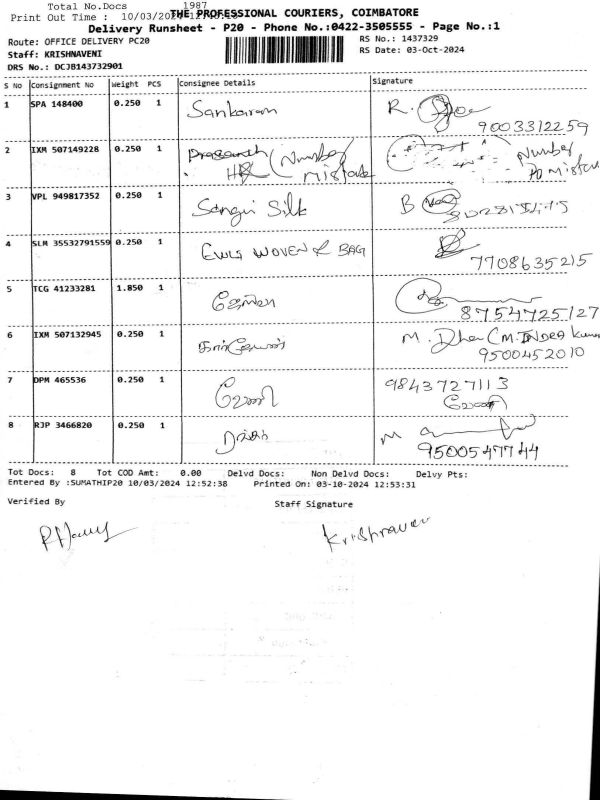 Total No.Docs 1987
Print Out Time : 10/03/2024
THE PROFESSIONAL COURIERS, COIMBATORE
Delivery Runsheet - P20 - Phone No.:0422-3505555 - Page No.:1
Route: OFFICE DELIVERY PC20 RS No.: 1437329
Staff: KRISHNAVENI RS Date: 03-Oct-2024
DRS No.: DCJB143732901
S No Consignment No Weight PCS Consignee Details Signature
1 SPA 148400 0.250 1 Sankaran R. 9003312259
2 IXM 507149228 0.250 1 Prasanth (Number Mistake Number
3 VPL 949817352 0.250 1 Sangu Silk B
4 SLM 35532791559 0.250 1 WOVEN BAG 7708635215
5 TCG 41233281 1.850 1 8754725127
6 IXM 507132945 0.250 1 M. 9500452010
7 DPM 465536 0.250 1 வேணி 9843727113
வேணி
8 RJP 3466820 0.250 1 M 9500547744
Tot Docs: 8 Tot COD Amt: 0.00 Delvd Docs: Non Delvd Docs: Delvy Pts:
Entered By :SUMATHIP20 10/03/2024 12:52:38 Printed On: 03-10-2024 12:53:31
Verified By Staff Signature
Krishnaveni